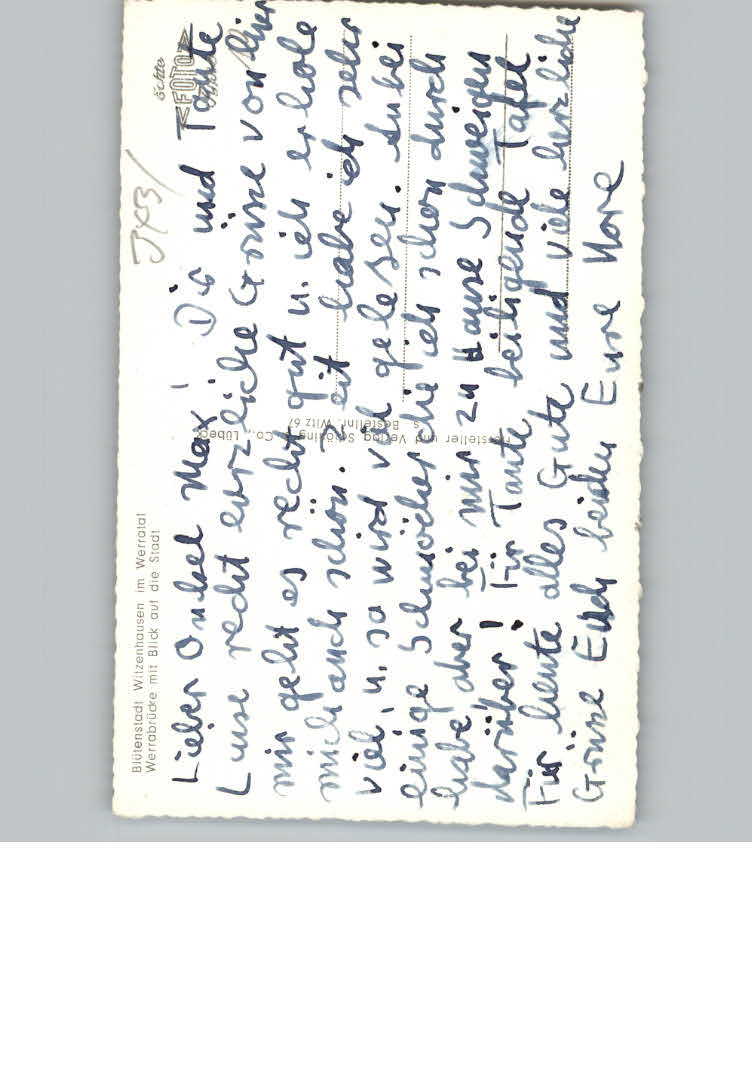 Blütenstadt Witzenhausen im Werratal
Werrabrücke mit Blick auf die Stadt
Echte
FOTO
JXB/
Lieber Onkel Max! Dir und Tante
Luise recht herzliche Grüsse von hier
mir geht es recht gut u. ich erhole
mich auch schön. Zeit habe ich sehr
viel, u. so wird viel gelesen. Anbei
einige Schmöcker die ich schon durch
habe aber bei mir zu Hause Schweigen
darüber! Für Tante beiligende Tafel
Für heute alles Gute und viele herzliche
Grüsse Euch beiden Eure
Hersteller und Verlag Schöning & Co., Lübeck
S Bestellnr. Witz 67